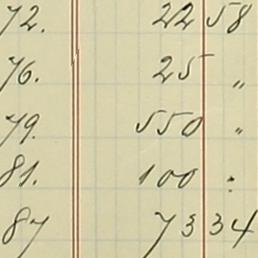 72. 22 58
76. 25 "
79. 550 "
81. 100 :
87 73 34